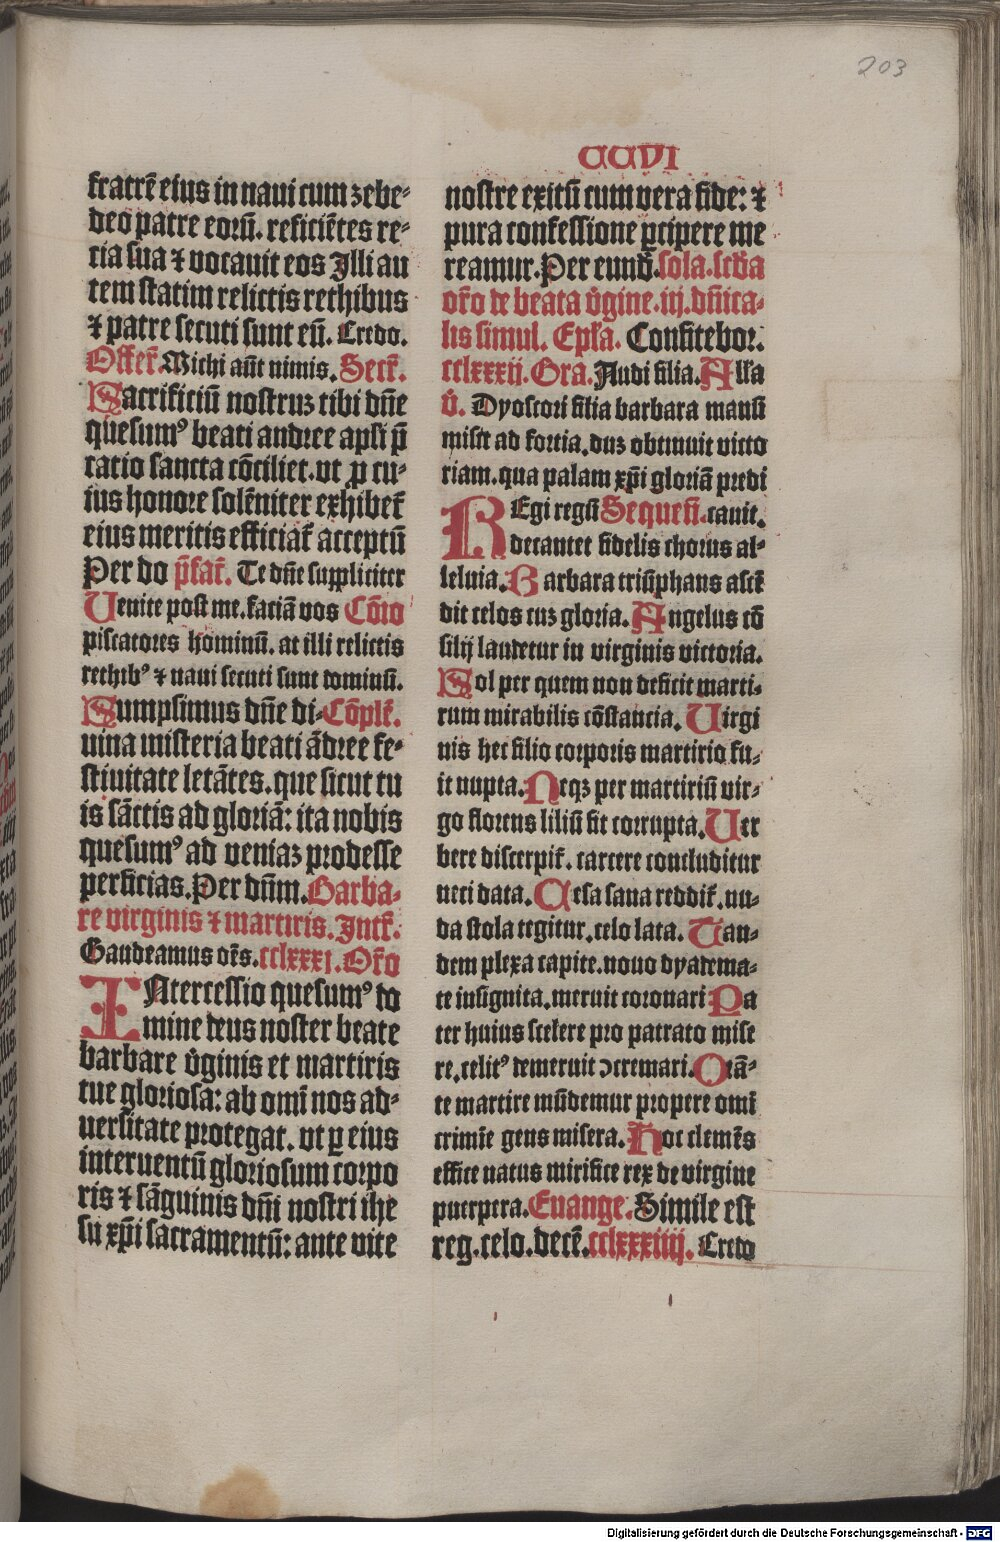 203
CCVI
fratrē eius in naui cum zebe⸗
deo patre eorū. reficiētes re⸗
tia sua ⁊ vocauit eos Illi au
tem statim relictis rethibus
⁊ patre secuti sunt eū. Credo.
Offert̄. Michi aūt nimis. Secr̄.
Sacrificiū nostruz tibi dn̄e
quesumꝰ beati andree apl̄i p̄
catio sancta cōciliet. vt ꝓ cu⸗
ius honore solēniter exhibet᷑
eius meritis efficiat᷑ acceptū
Per do p̄fat̄. Te dn̄e suppliciter
Uenite post me. faciā vos Cōio
piscatores hominū. at illi relictis
rethibꝰ ⁊ naui secuti sunt dominū.
Sumpsimus dn̄e di⸗Cōplēt.
uina misteria beati ādree fe⸗
stiuitate letātes. que sicut tu
is sāctis ad gloriā: ita nobis
quesumꝰ ad veniaz prodesse
perficias. Per dn̄m. Barba⸗
re virginis ⁊ martiris. Intr̄.
Gaudeamus oēs. cclxxxi. Or̄o
INtercessio quesumꝰ do
mine deus noster beate
barbare v̄ginis et martiris
tue gloriosa: ab omī nos ad⸗
uersitate protegat. vt ꝑ eius
interuentū gloriosum corpo
ris ⁊ sāguinis dn̄i nostri ihe
su xp̄i sacramentū: ante vite
nostre exitū cum vera fide: ⁊
pura confessione ꝑcipere me
reamur. Per eund̄. sola. scd̄a
or̄o de beata v̄gine. iij. dn̄ica⸗
lis simul. Epl̄a. Confitebor.
cclxxxij. Gra. Audi filia. All̄a
v̄. Dyoscori filia barbara mansi
misit ad fortia. duz obtinuit victo
riam. qua palam xp̄i gloriā predi
REgi regū Sequen̄. cauit.
decantet fidelis chorus al⸗
leluia. Barbara triūphans ascē
dit celos cuz gloria. Angelus cō
silij laudetur in virginis victoria.
Sol per quem non deficit marti⸗
rum mirabilis cōstancia. Uirgi
nis hec filio corporis martirio fu⸗
it nupta. Neqꝫ per martiriū vir⸗
go florens liliū fit corrupta. Uer
bere discerpit᷑. carcere concluditur
neci data. Cesa sana reddit᷑. nu⸗
da stola tegitur. celo lata. Uan⸗
dem plexa capite. nouo dyadema⸗
te insignita. meruit coronari Pa
ter huius scelere pro patrato mise
re. celitꝰ demeruit ↄcremari. Orā⸗
te martire mūdemur propere omī
crimīe gens misera. Hoc clemēs
effice natus mirifice rex de virgine
puerpera. Euange. Simile est
reg. celo. decē. cclxxxiiij. Credo
Digitalisierung gefördert durch die Deutsche Forschungsgemeinschaft - DFG